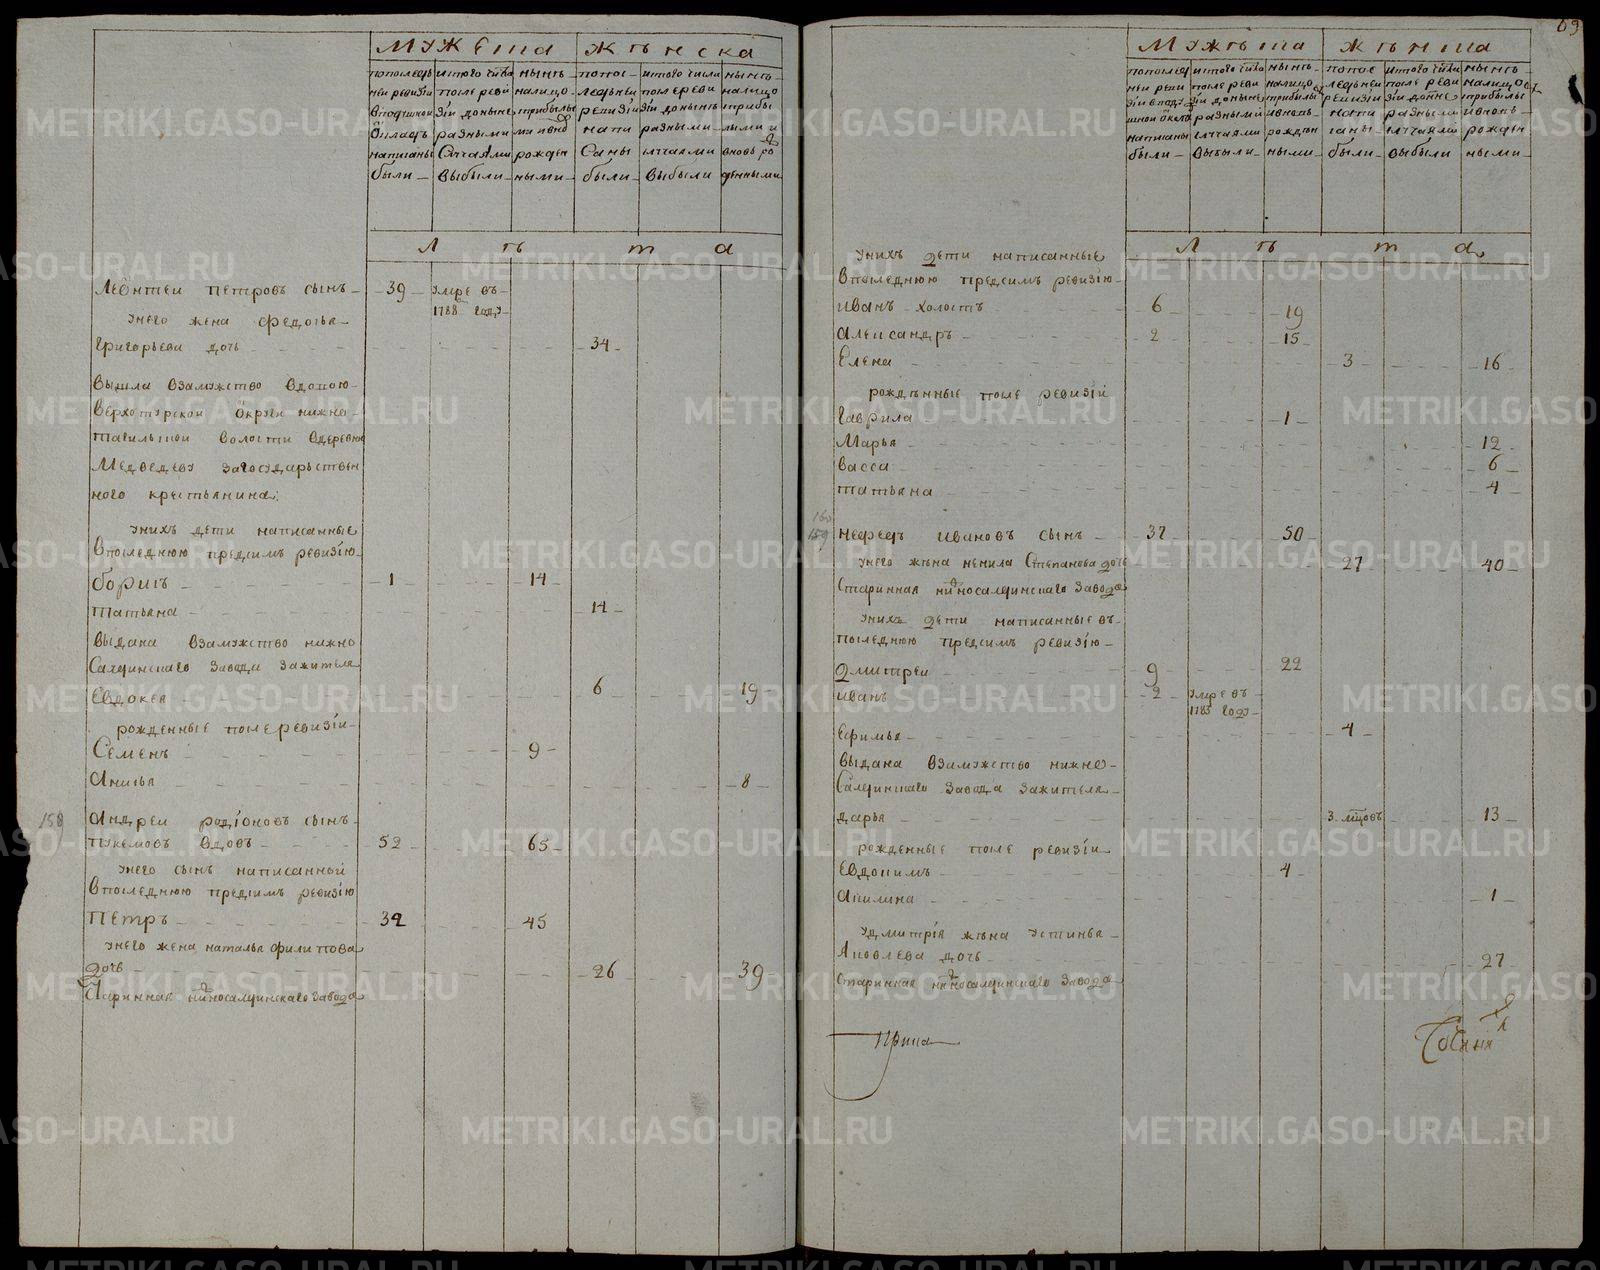 69
Мужеска
Женска
попослед
ней ревизіи
в подушной
окладъ
написаны
были
ис того числа
после реви
зіи доныне
разными
случаями
выбыли
ныне
налицо
с прибылы
ми и вно
рожден
ными
попос
ледней
ревизіи
напи
саны
были
ис того числа
после реви
зіи доныне
разными
случаями
выбыли
ныне
налицо
с прибы
лыми и
вновь ро
жденными
Л ѣ т а
Леонтеи Петровъ сынъ 39 умре въ
1788 году
у него жена Федосья
Григорьева дочь 34
вышла взамужство вдовою
Верхотурской округи нижне
тагильской волости в деревню
Медведеву за государствен
ного крестьянина.
у нихъ дети написанные
в последнюю предсимъ ревизію
борисъ 1 14
татьяна 14
выдана взамужство нижно
Салдинскаго завода за жителя
Евдокея 6 19
рожденные после ревизіи
Семенъ 9
Анисья 8
158
Андреи родіоновъ сынъ
вдовъ 52 65
у него сынъ написанной
в последнюю предсимъ ревизію
Петръ 32 45
у него жена наталья филипова
дочь 26 39
Старинная нижносалдинскаго завода
Мужеска
Женска
попослед
ней реви
зіи в поду
шной оклад
написаны
были
ис того числа
после реви
зіи доныне
разными
случаями
выбыли
ныне
налицо с
прибылы
и вновь
рожден
ными
попос
ледней
ревизіи
напи
саны
были
ис того числа
после реви
зіи доныне
разными
случаями
выбыли
ныне
налицо с
прибылы
и вновь
рожден
ными
Л ѣ т а
у нихъ дети написанные
в последнюю предсимъ ревизію
иванъ холостъ 6 19
Александръ 2 15
Елена 3 16
рожденные после ревизіи
Гаврила 1
Марья 12
васса 6
татьяна 4
160
159
нефедъ ивановъ сынъ 37 50
у него жена ненила Степанова дочь 27 40
Старинная нижносалдинскаго завода
у нихъ дети написанные въ
последнюю предсимъ ревизію
дмитреи 9 22
иванъ 2 умре въ
1783 году
Ефимья 4
выдана взамужство нижно
Салдинскаго завода за жителя
дарья 3. мцовъ 13
рожденные после ревизіи
Евдокимъ 4
Акилина 1
у дмитрія жена устинья
Яковлева дочь 27
Старинная нижносалдинскаго завода
METRIKI.GASO-URAL.RU